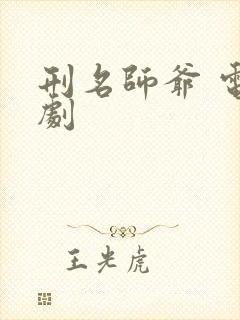 刑名師爺 電
劇
王光虎